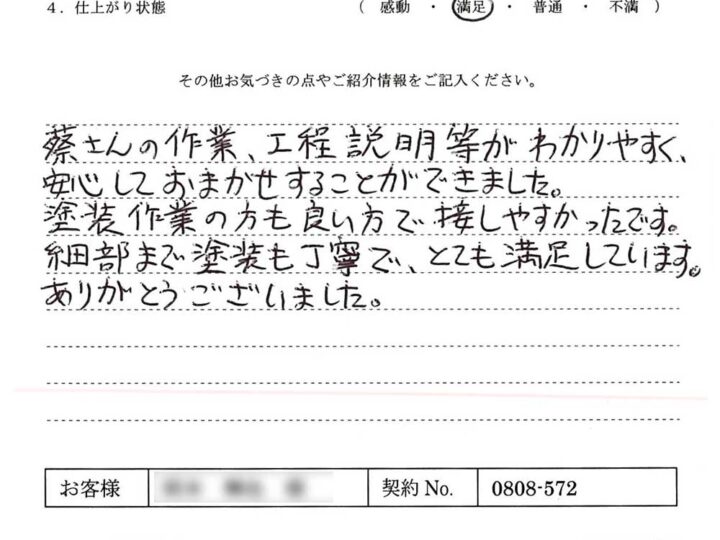 4．仕上がり状態 （ 感動 ・ 満足 ・ 普通 ・ 不満 ）
その他お気づきの点やご紹介情報をご記入ください。
蔡さんの作業、工程説明等がわかりやすく、
安心しておまかせすることができました。
塗装作業の方も良い方で接しやすかったです。
細部まで塗装も丁寧で、とても満足しています。
ありがとうございました。
お客様 契約 No. 0808-572